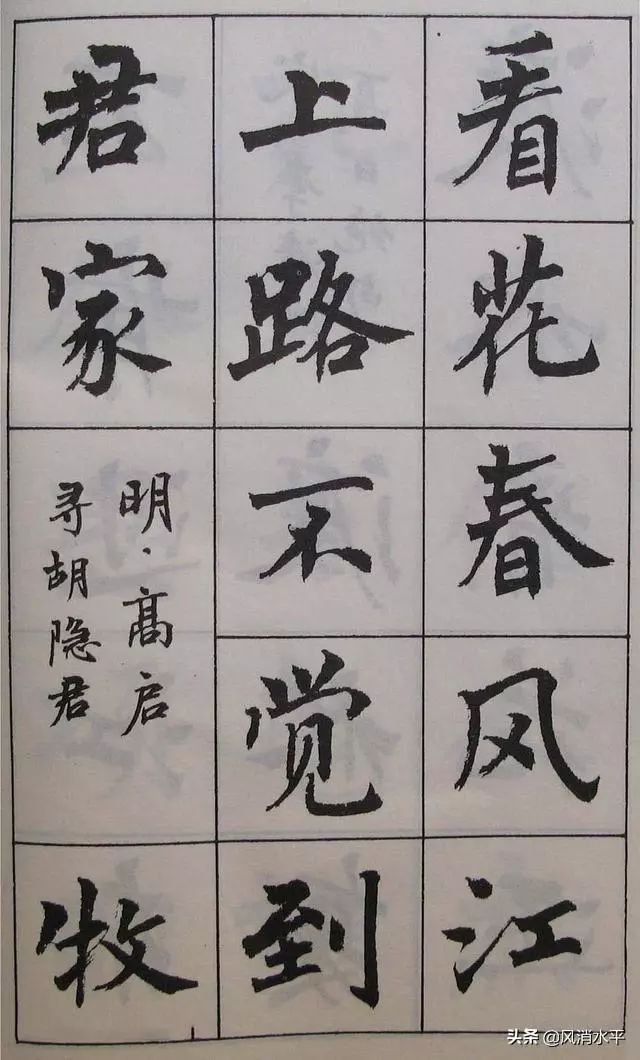 看花春风江
上路不觉到
君家
明·高启
寻胡隐君
牧
头条 @风消水平